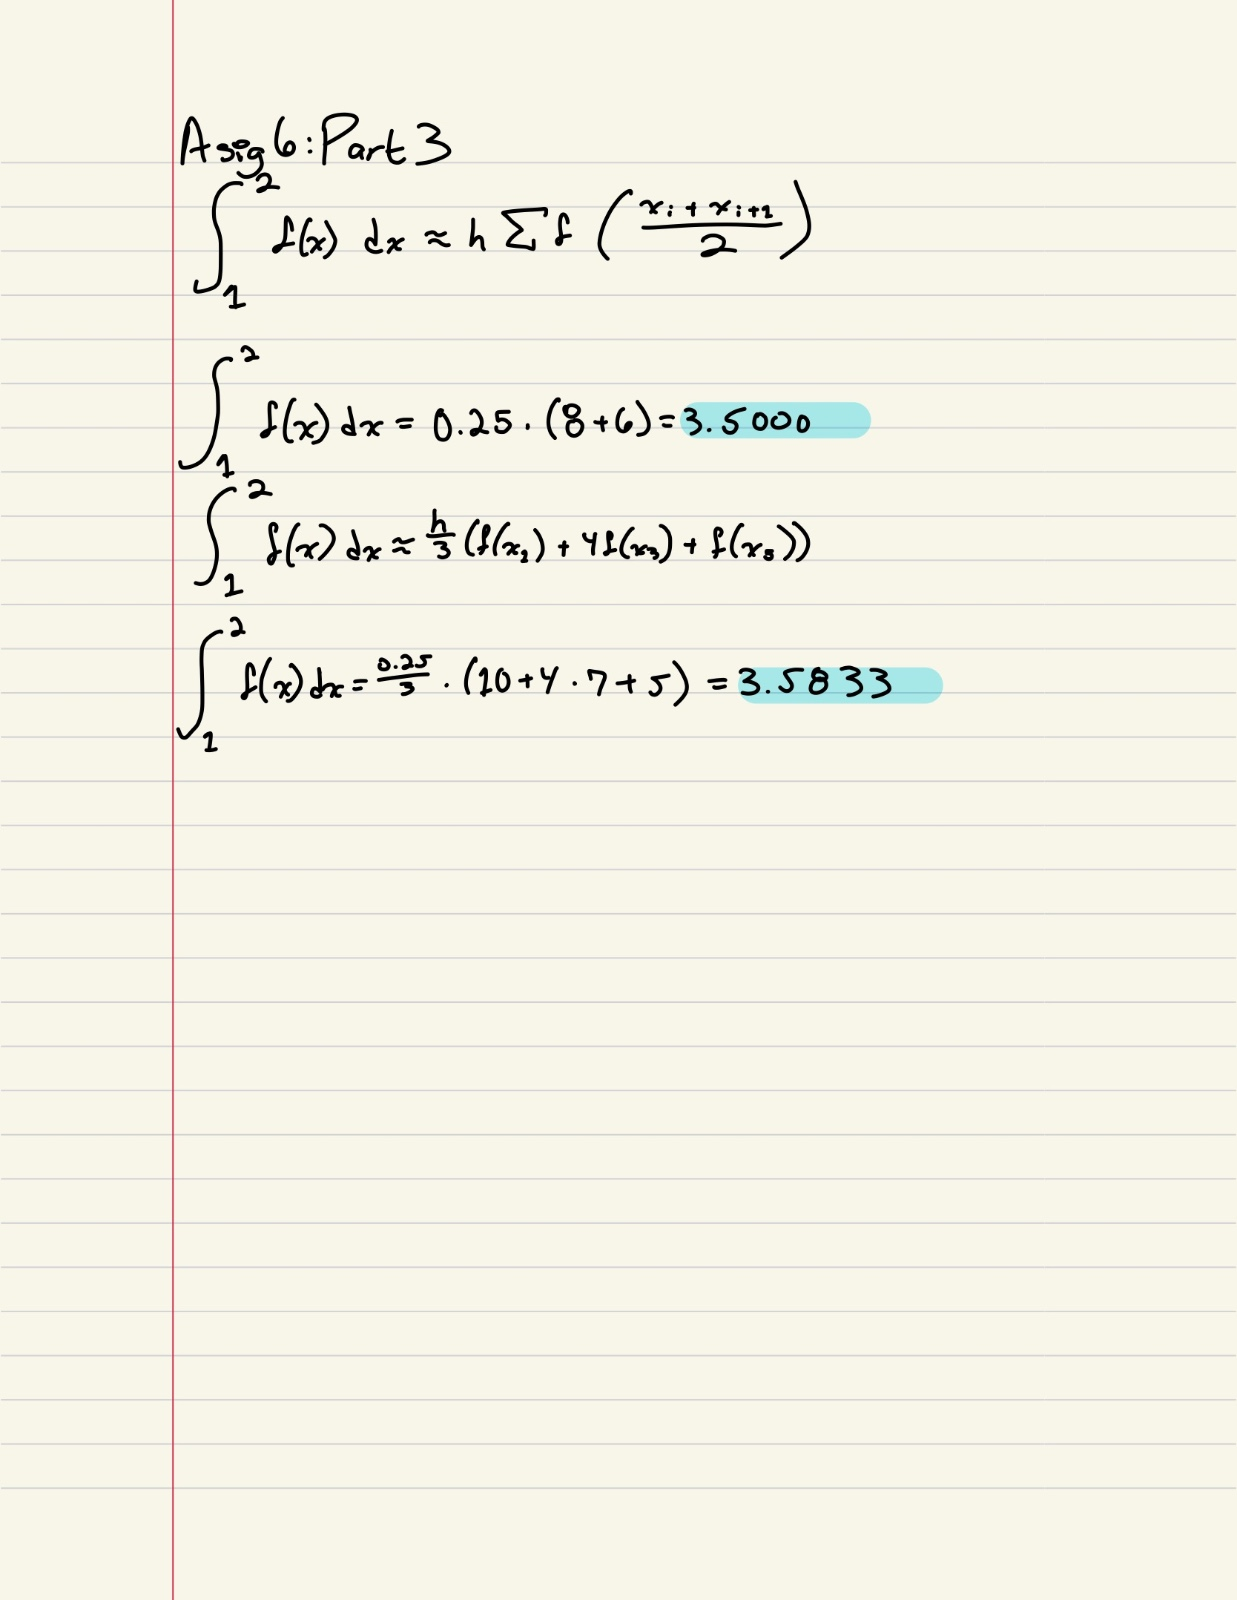 Asig 6: Part 3
∫₁² f(x) dx ≈ h ∑ f ((xᵢ + xᵢ₊₁)/2)
∫₁² f(x) dx = 0.25 · (8+6) = 3.5000
∫₁² f(x) dx ≈ h/3 (f(x₁) + 4f(x₃) + f(x₅))
∫₁² f(x) dx = 0.25/3 · (10+4·7+5) = 3.5833